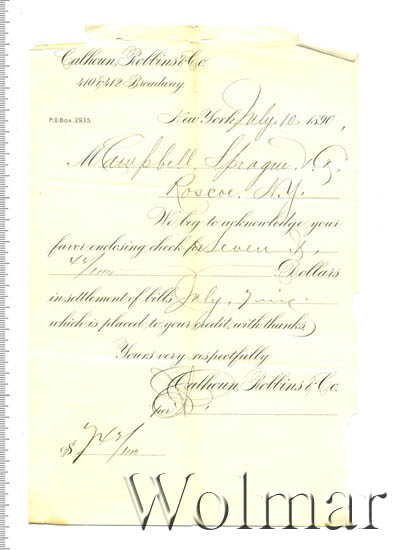 Calhoun, Robbins & Co.
410 & 412 Broadway.
P.O. Box 2935.
New York, July 10 1890,
M Campbell, Sprague
Roscoe, N.Y.
We beg to acknowledge your
favor enclosing check for Seven &
Dollars
in settlement of bills July,
which is placed to your credit, with thanks
Yours very respectfully
Calhoun, Robbins & Co.
per
$ 7
Wolmar